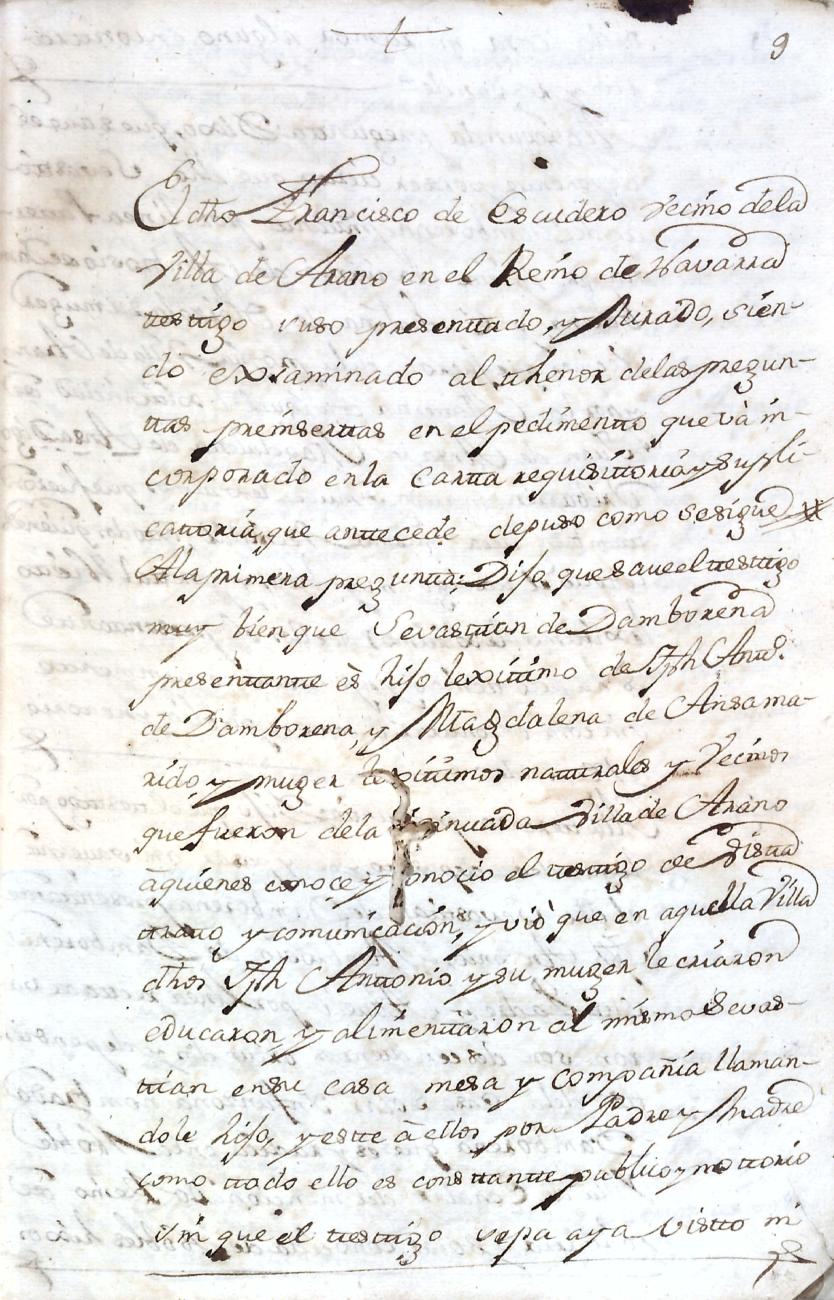 9
El dho Francisco de Escudero vecino de la
Villa de Arano en el Reino de Navarra
testigo suso presentado, y Jurado, sien-
do exsaminado al thenor de las pregun-
tas preinsertas en el pedimento que và in-
corporado en la Carta requisitoria y supli-
catoria, que antecede depuso como se sigue
A la primera pregunta; Dijo, que save el testigo
muy bien que Sevastian de Damborena
presentante ès hijo lexitimo de Jph Antto.
de Damborena, y Magdalena de Ansa ma-
rido, y muger lexitimos naturales y Vecinos
que fueron de la Villa de Arano
àquienes conoce y conocio el testigo de Vista
tratto y comunicación, y viò que en aquella Villa
dhos Jph Anttonio y su muger le criaron
educaron y alimentaron al mismo Sevas-
tian en su casa mesa y Compañia llaman-
dole hijo, y este à ellos por Padre y Madre
como todo ello es constante publico y nottorio
sin que el testigo sepa aya visto ni